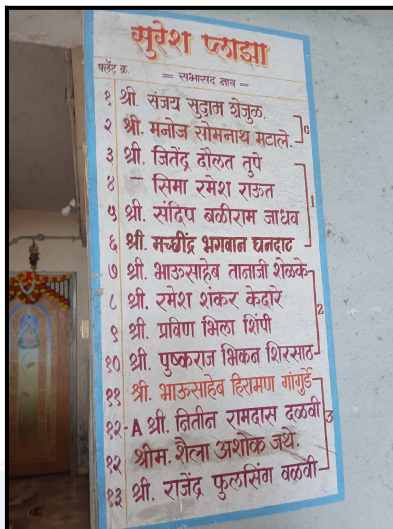 सुरेश प्लाझा
फ्लॅट क्र. == सभासद नाव ==
१ श्री. संजय सुदाम शेजुळ.
२ श्री. मनोज सोमनाथ मटाले. G
३ श्री. जितेंद्र दौलत तुपे
४ — सिमा रमेश राऊत 1
५ श्री. संदिप बळीराम जाधव
६ श्री. मच्छींद्र भगवान घनदाट
७ श्री. भाऊसाहेब तानाजी शेळके
८ श्री. रमेश शंकर केदारे 2
९ श्री. प्रविण भिला शिंपी
१० श्री. पुष्कराज भिकन शिरसाठ
११ श्री. भाऊसाहेब हिरामण गांगुर्डे
१२-A श्री. नितीन रामदास दळवी 3
१२ श्रीम. शैला अशोक जथे.
१३ श्री. राजेंद्र फुलसिंग वळवी